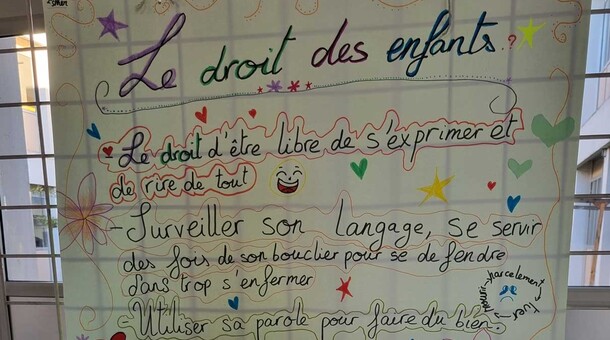 Le droit des enfants.?
- Le droit d'être libre de s'exprimer et
de rire de tout
- Surveiller son langage, se servir
des fois de son bouclier pour se defendre
dans trop s'enfermer
- Utiliser sa parole pour faire du bien.